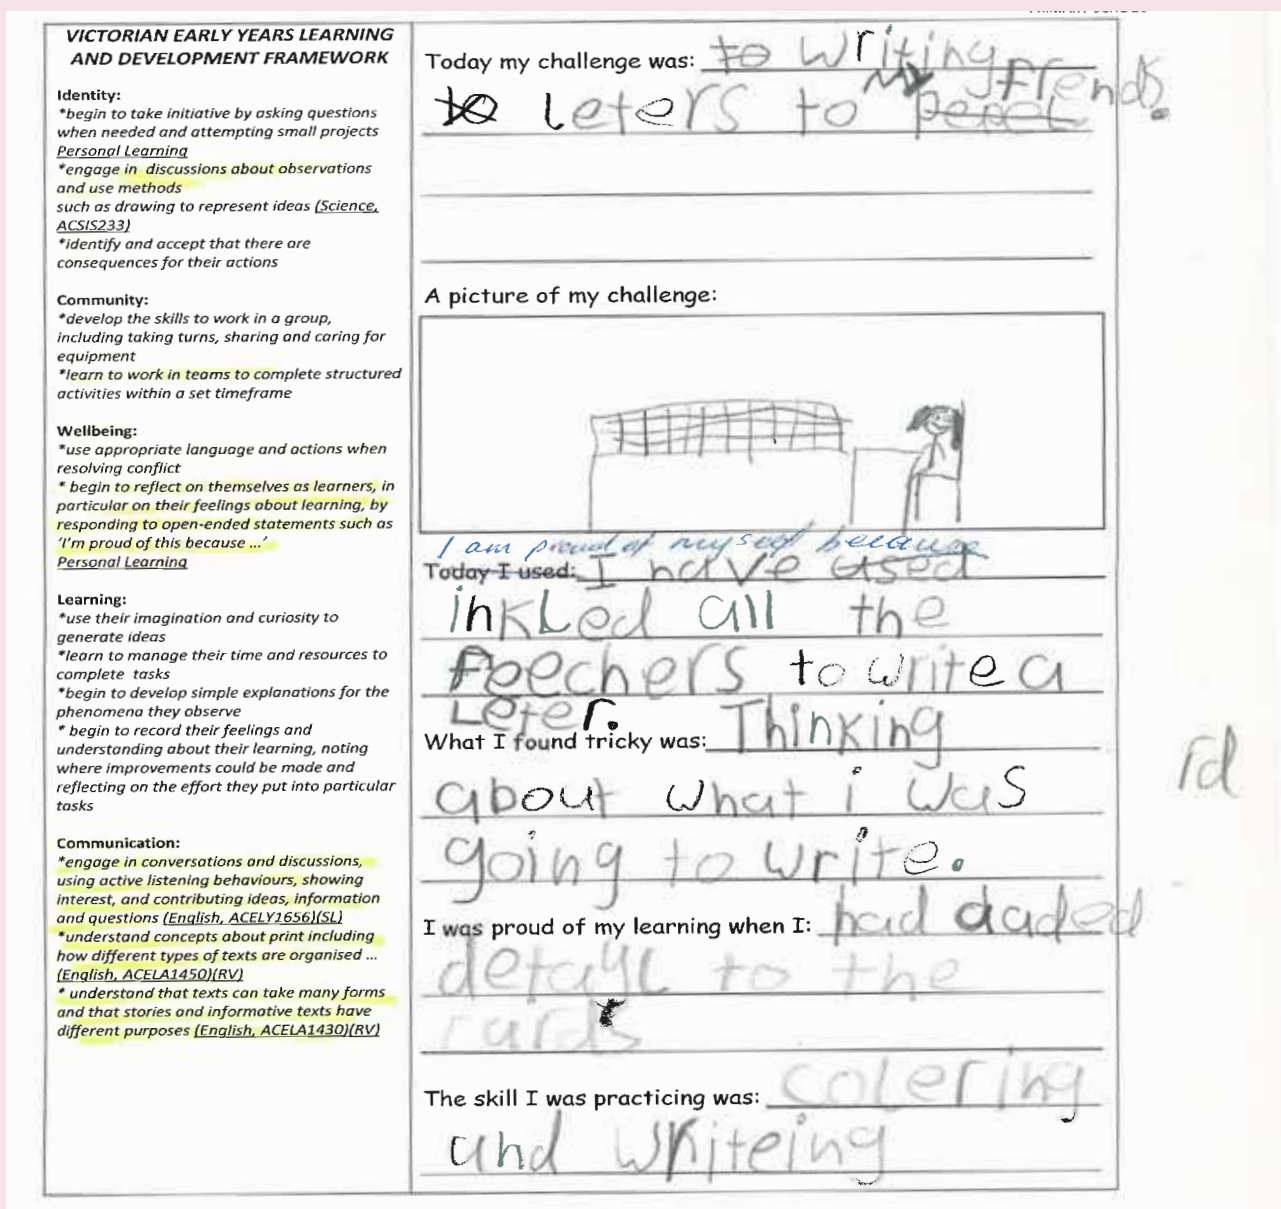 VICTORIAN EARLY YEARS LEARNING
AND DEVELOPMENT FRAMEWORK
Identity:
*begin to take initiative by asking questions
when needed and attempting small projects
Personal Learning
*engage in discussions about observations
and use methods
such as drawing to represent ideas (Science,
ACSIS233)
*identify and accept that there are
consequences for their actions
Community:
*develop the skills to work in a group,
including taking turns, sharing and caring for
equipment
*learn to work in teams to complete structured
activities within a set timeframe
Wellbeing:
*use appropriate language and actions when
resolving conflict
* begin to reflect on themselves as learners, in
particular on their feelings about learning, by
responding to open-ended statements such as
‘I’m proud of this because ...’
Personal Learning
Learning:
*use their imagination and curiosity to
generate ideas
*learn to manage their time and resources to
complete tasks
*begin to develop simple explanations for the
phenomena they observe
* begin to record their feelings and
understanding about their learning, noting
where improvements could be made and
reflecting on the effort they put into particular
tasks
Communication:
*engage in conversations and discussions,
using active listening behaviours, showing
interest, and contributing ideas, information
and questions (English, ACELY1656)(SL)
*understand concepts about print including
how different types of texts are organised ...
(English, ACELA1450)(RV)
* understand that texts can take many forms
and that stories and informative texts have
different purposes (English, ACELA1430)(RV)
Today my challenge was: to writing
to leters to my frends.
A picture of my challenge:
I am proud of myself because
Today I used: I have used
inkLed all the
feechers to write a
Leter.
What I found tricky was: Thinking
about what i was
going to write.
I was proud of my learning when I: had daded
to the
The skill I was practicing was: colering
and writeing
rd